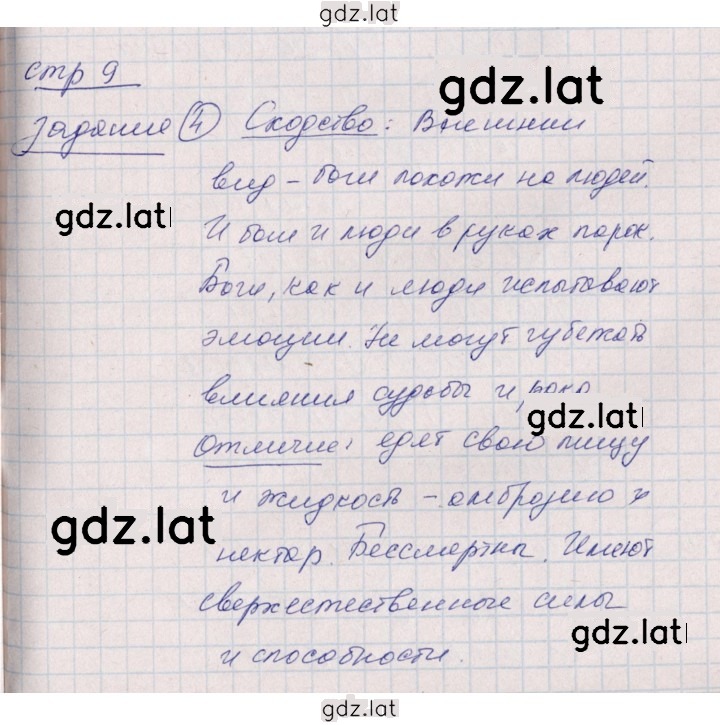 gdz.lat
стр 9
gdz.lat
Задание 4 Сходство: Внешний
вид – боги похожи на людей.
gdz.lat
И боги и люди в руках парок.
Боги, как и люди испытывают
эмоции. Не могут убежать
влияния судьбы и рока
gdz.lat
Отличие: едят свою пищу
и жидкость – амброзию и
gdz.lat
нектар. Бессмертны. Имеют
сверхестественные силы
gdz.lat
и способности.
gdz.lat